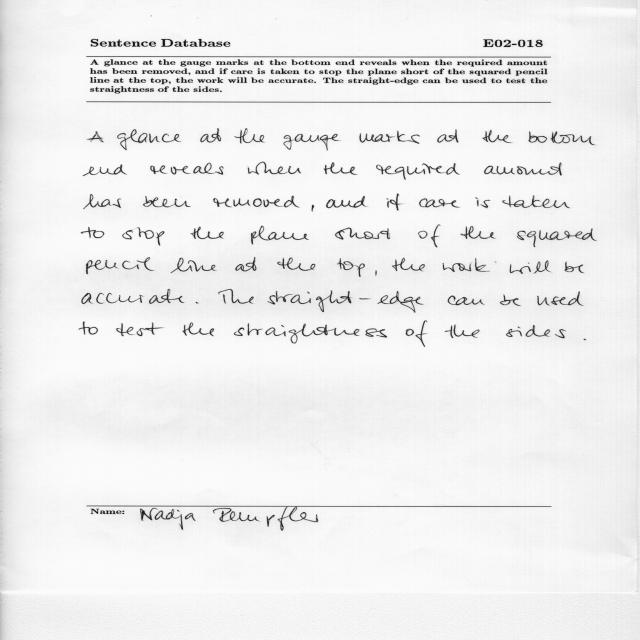 Sentence Database E02-018
A glance at the gauge marks at the bottom end reveals when the required amount
has been removed, and if care is taken to stop the plane short of the squared pencil
line at the top, the work will be accurate. The straight-edge can be used to test the
straightness of the sides.
A glance at the gauge marks at the bottom
end reveals when the required amount
has been removed, and if care is taken
to stop the plane short of the squared
pencil line at the top, the work will be
accurate. The straight-edge can be used
to test the straightness of the sides.
Name: Nadja